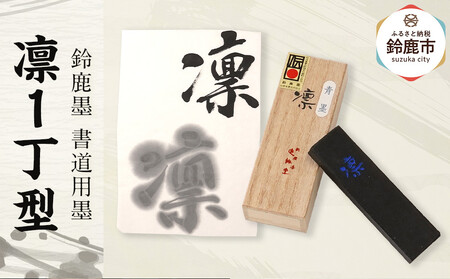 鈴鹿墨 書道用墨
凛1丁型
凛
凛
青墨
凛
凛
ふるさと納税
鈴鹿市
suzuka city